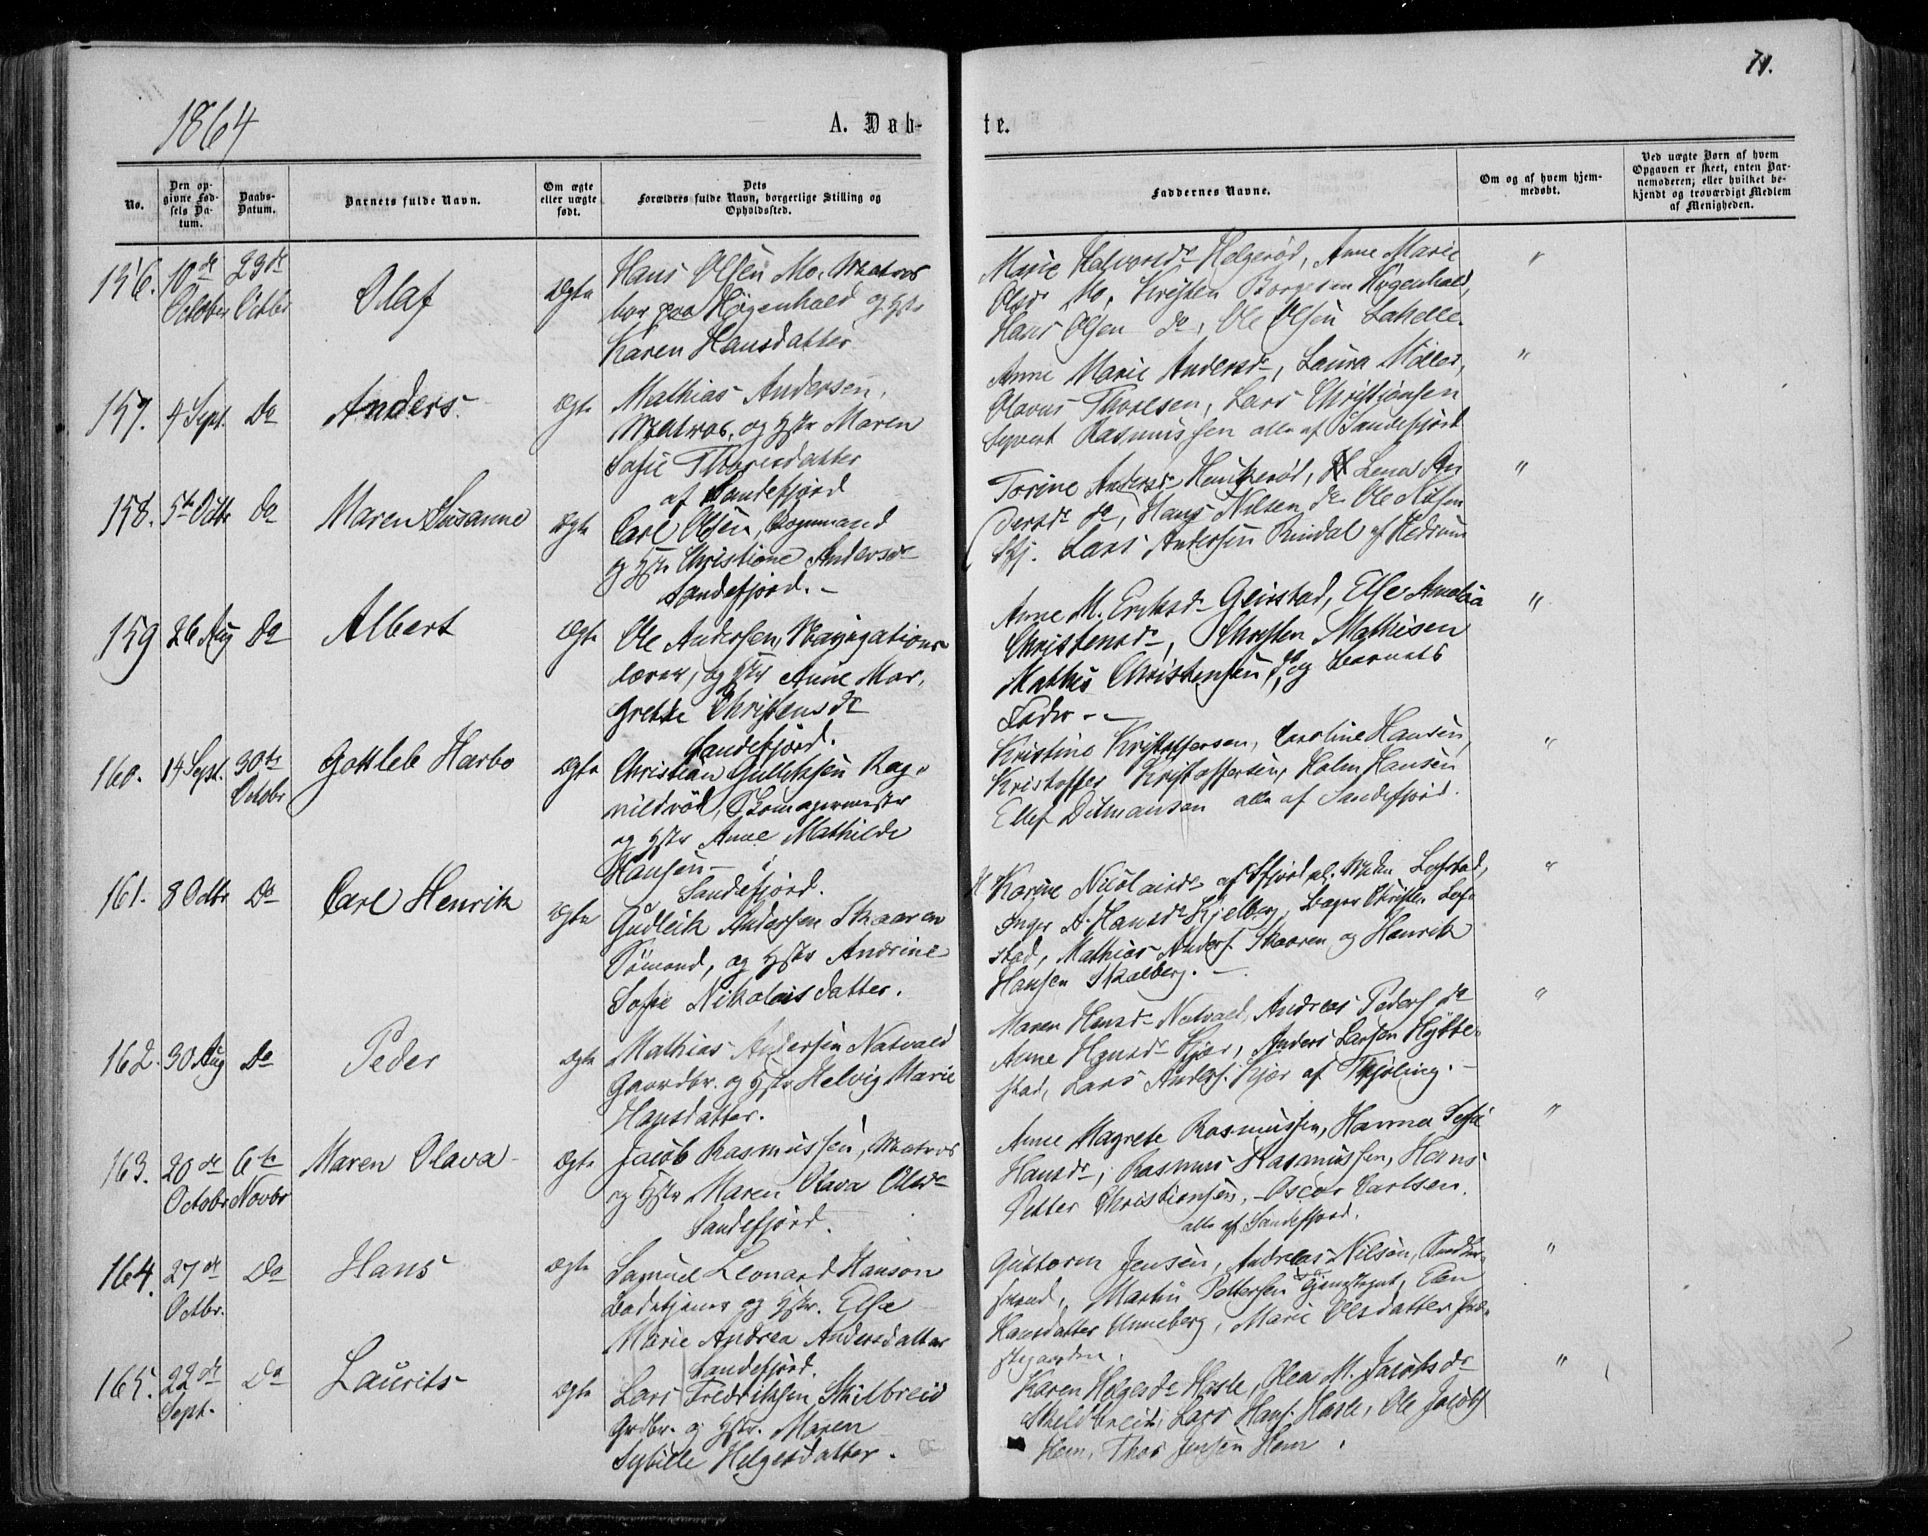 71.
1864
A. Døb-
te.
No.
Den op-
givne Fød-
sels Da-
tum.
Daabs-
Datum.
Barnets fulde Navn.
Om ægte
eller uægte
født.
Dets
Forældres fulde Navn, borgerlige Stilling og
Opholdssted.
Faddernes Navne.
Om og af hvem hjem-
medøbt.
Ved uægte Børn af hvem
Opgaven er skeet, enten Bar-
nemoderen; eller hvilket be-
kjendt og troværdigt Medlem
af Menigheden.
156. 10de October
23de Octbr
Olaf
Ægte
Hans Olsen Mo, Matros
bor paa Høgenhald og Hstr
Karen Hansdatter
Marie Halvorsdr Helgerød, Anne Marie
Olsdr Mo, Kristen Borgesen Høgenhald,
Hans Olsen do, Ole Olsen
"
157. 4 Sept. Do
Anders
Ægte
Mathias Andersen,
Matros, og Hstr Maren
Sofie Thoresdatter
af Sandefjord
Anne Marie Andersdr, Laura Möller,
Olavus Thoresen, Lars Christiansen
Syvert Rasmussen alle af Sandefjord
"
158. 5te Octbr Do
Maren Susanne
Ægte
Carl Olsen, Bogmand
og Hstr Christiane Andersdr
Sandefjord. -
Torine Andersdr Haukerød, Lena An
dersdr do, Hans Nilsen do Ole Nilsen
Lars Andersen Rindal af Hedrum
"
159 26 Aug Do
Albert
Ægte
Ole Andersen, Navigations
lærer, og Hstr Anne Mar.
grethe Christensdr
Sandefjord.
Anne M. Eriksdr Geirstad, Else Amalia
Christensdr, Christen Mathisen
Mathis Christensen, do og Barnets
Fader - -
"
160. 14 Sept. 30te Octobr
Gottleb Harbo
Ægte
Christian Gulliksen Rag-
nildrød, Skomagermester
og Hstr Anne Mathilde
Hansen - i
Sandefjord.
Kristine Kristoffersen, Caroline Hansen,
Kristoffer Kristoffersen, Holm Hansen
Ellef Ditmansen alle af Sandefjord.
"
161. 8 Octbr Do
Carl Henrik
Ægte
Gudleik Andersen Skaaren
Sömand, og Hstr Andrine
Sofie Nikolaisdatter.
Karine Nicolaisdr af Sfjord,
Inger A. Hansdr Kjelberg,
stad, Mathias Anders. Skaaren og Henrik
Hansen Skalberg. -
"
162. 30 Aug Do
Peder
Ægte
Mathias Andersen Natvald
Gaardbr. og Hstr Helvig Marie
Hansdatter.
Maren Hansdr Natvald, Andreas Peders. do
Anne Hansdr Kjær, Anders Larsen Hytte-
stad, Lars Anders. Kjær af Thjöling. -
"
163. 20de Octobr
6te Novbr
Maren Olava
Ægte
Jacob Rasmussen, Matros
og Hstr Maren Olava Olsdr
Sandefjord.
Anne Magrete Rasmussen, Hanna Sofie
Hansdr, Rasmus Rasmussen, Hans
Petter Christiansen, Oscar Carlsen.
alle af Sandefjord.
"
164. 27de Octbr.
Do
Hans
Ægte
Samuel Leonard Hanson
Badetjener og Hstr. Else
Marie Andrea Andersdatter
Sandefjord.
Guttorm Jensen, Andreas Nilsen,
Martin Pettersen
Hansdatter Unneberg, Marie Olsdatter Præ-
stegaarden.
"
165. 22de Sept.
Do
Laurits
Ægte
Lars Fredriksen Skilbreid
Grdbr. og Hstr. Maren
Sybille Helgesdatter.
Karen Helgesdr Hasle, Olea M. Jacobsdr
Skeldbreid, Lars Hans. Hasle, Ole Jacobs.
Hem, Thor Jensen Hem.
"